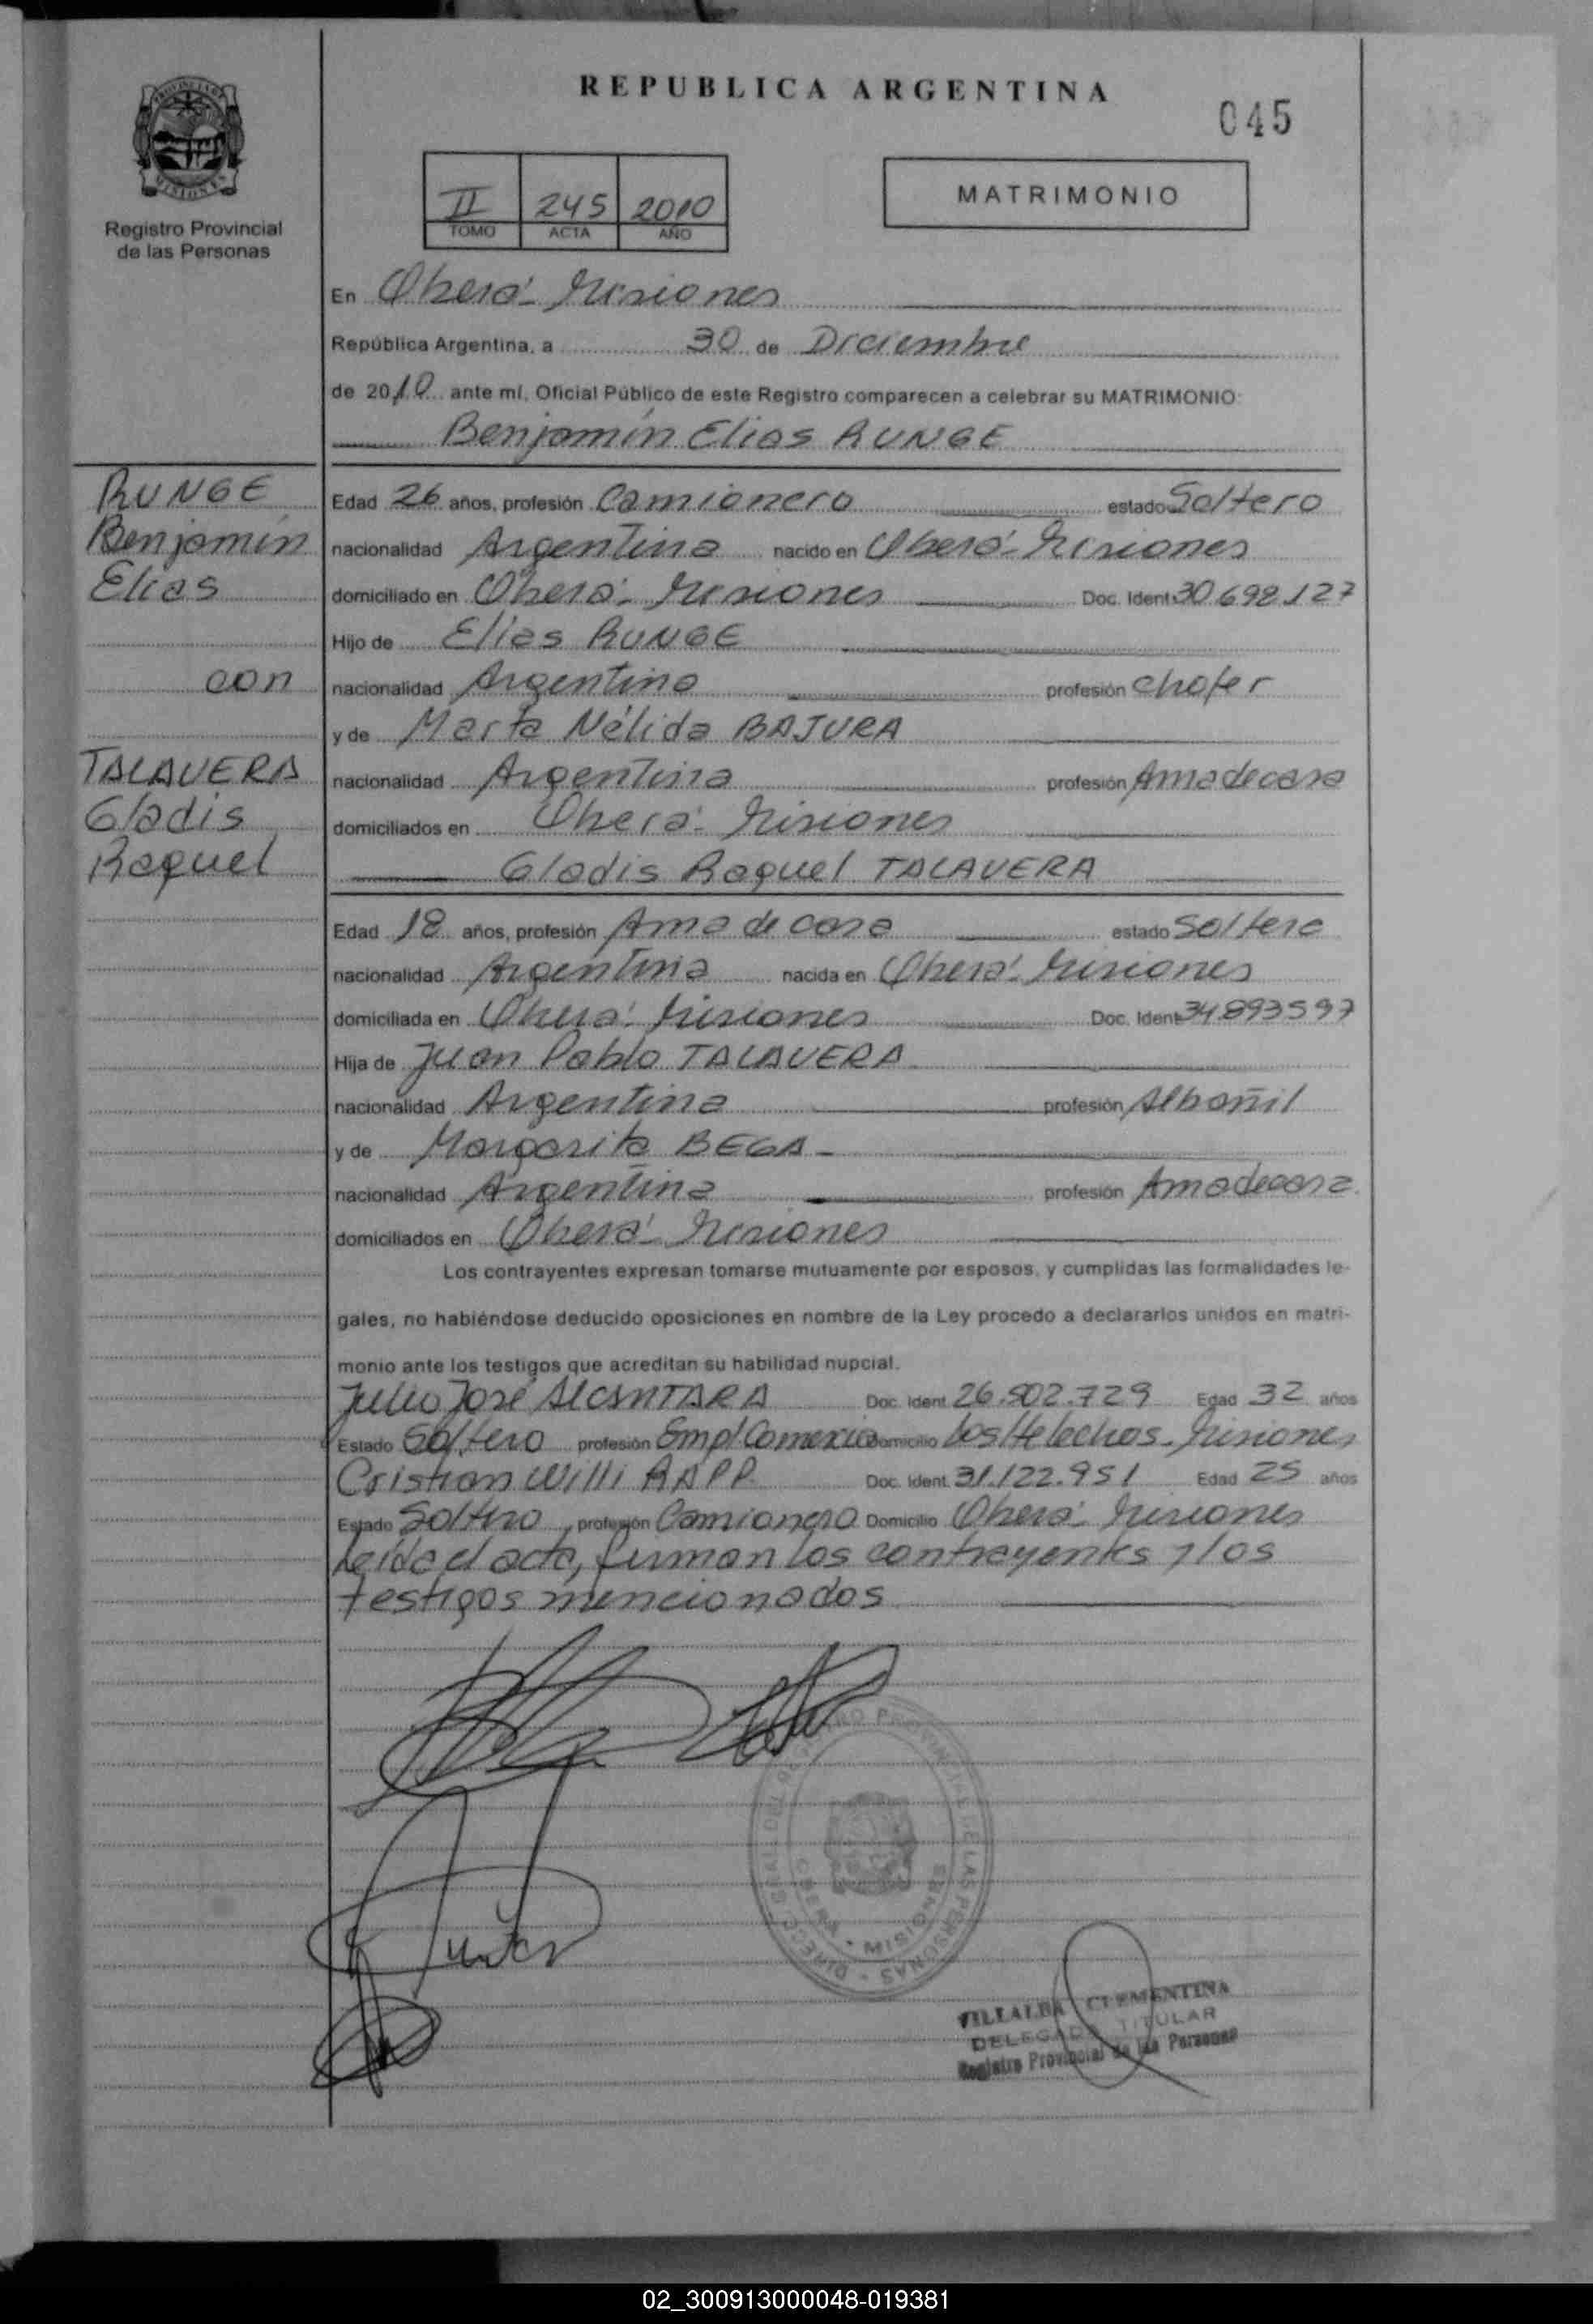 REPUBLICA ARGENTINA
045
PROVINCIA DE
MISIONES
Registro Provincial
de las Personas
II 245 2010
TOMO ACTA AÑO
MATRIMONIO
En Oberá - Misiones
República Argentina, a 30 de Diciembre
de 2010 ante mí, Oficial Público de este Registro comparecen a celebrar su MATRIMONIO:
Benjamín Elias RUNGE
RUNGE
Benjamín
Elias
con
TALAVERA
Gladis
Raquel
Edad 26 años, profesión Camionero estado Soltero
nacionalidad Argentina nacido en Oberá - Misiones
domiciliado en Oberá - Misiones Doc. Ident. 30.698.127
Hijo de Elias RUNGE
nacionalidad Argentina profesión chofer
y de Marta Nélida BAJURA
nacionalidad Argentina profesión Ama de casa
domiciliados en Oberá - Misiones
Gladis Raquel TALAVERA
Edad 18 años, profesión Ama de casa estado Soltera
nacionalidad Argentina nacida en Oberá - Misiones
domiciliada en Oberá - Misiones Doc. Ident. 34.893.597
Hija de Juan Pablo TALAVERA
nacionalidad Argentina profesión Albañil
y de Margarita BEGA -
nacionalidad Argentina profesión Ama de casa
domiciliados en Oberá - Misiones
Los contrayentes expresan tomarse mutuamente por esposos, y cumplidas las formalidades le-
gales, no habiéndose deducido oposiciones en nombre de la Ley procedo a declararlos unidos en matri-
monio ante los testigos que acreditan su habilidad nupcial.
Julio José ALCANTARA Doc. Ident. 26.502.729 Edad 32 años
Estado Soltero profesión Empl Comercio Domicilio Los Helechos - Misiones
Cristian Willi RAPP Doc. Ident. 31.122.951 Edad 25 años
Estado Soltero, profesión Camionero Domicilio Oberá - Misiones
Leída el acta, firman los contrayentes y los
testigos mencionados
DIRECCION GRAL. DEL REGISTRO PROVINCIAL DE LAS PERSONAS
OBERA - MISIONES
VILLALBA CLEMENTINA
DELEGADA TITULAR
Registro Provincial de las Personas
02_300913000048-019381